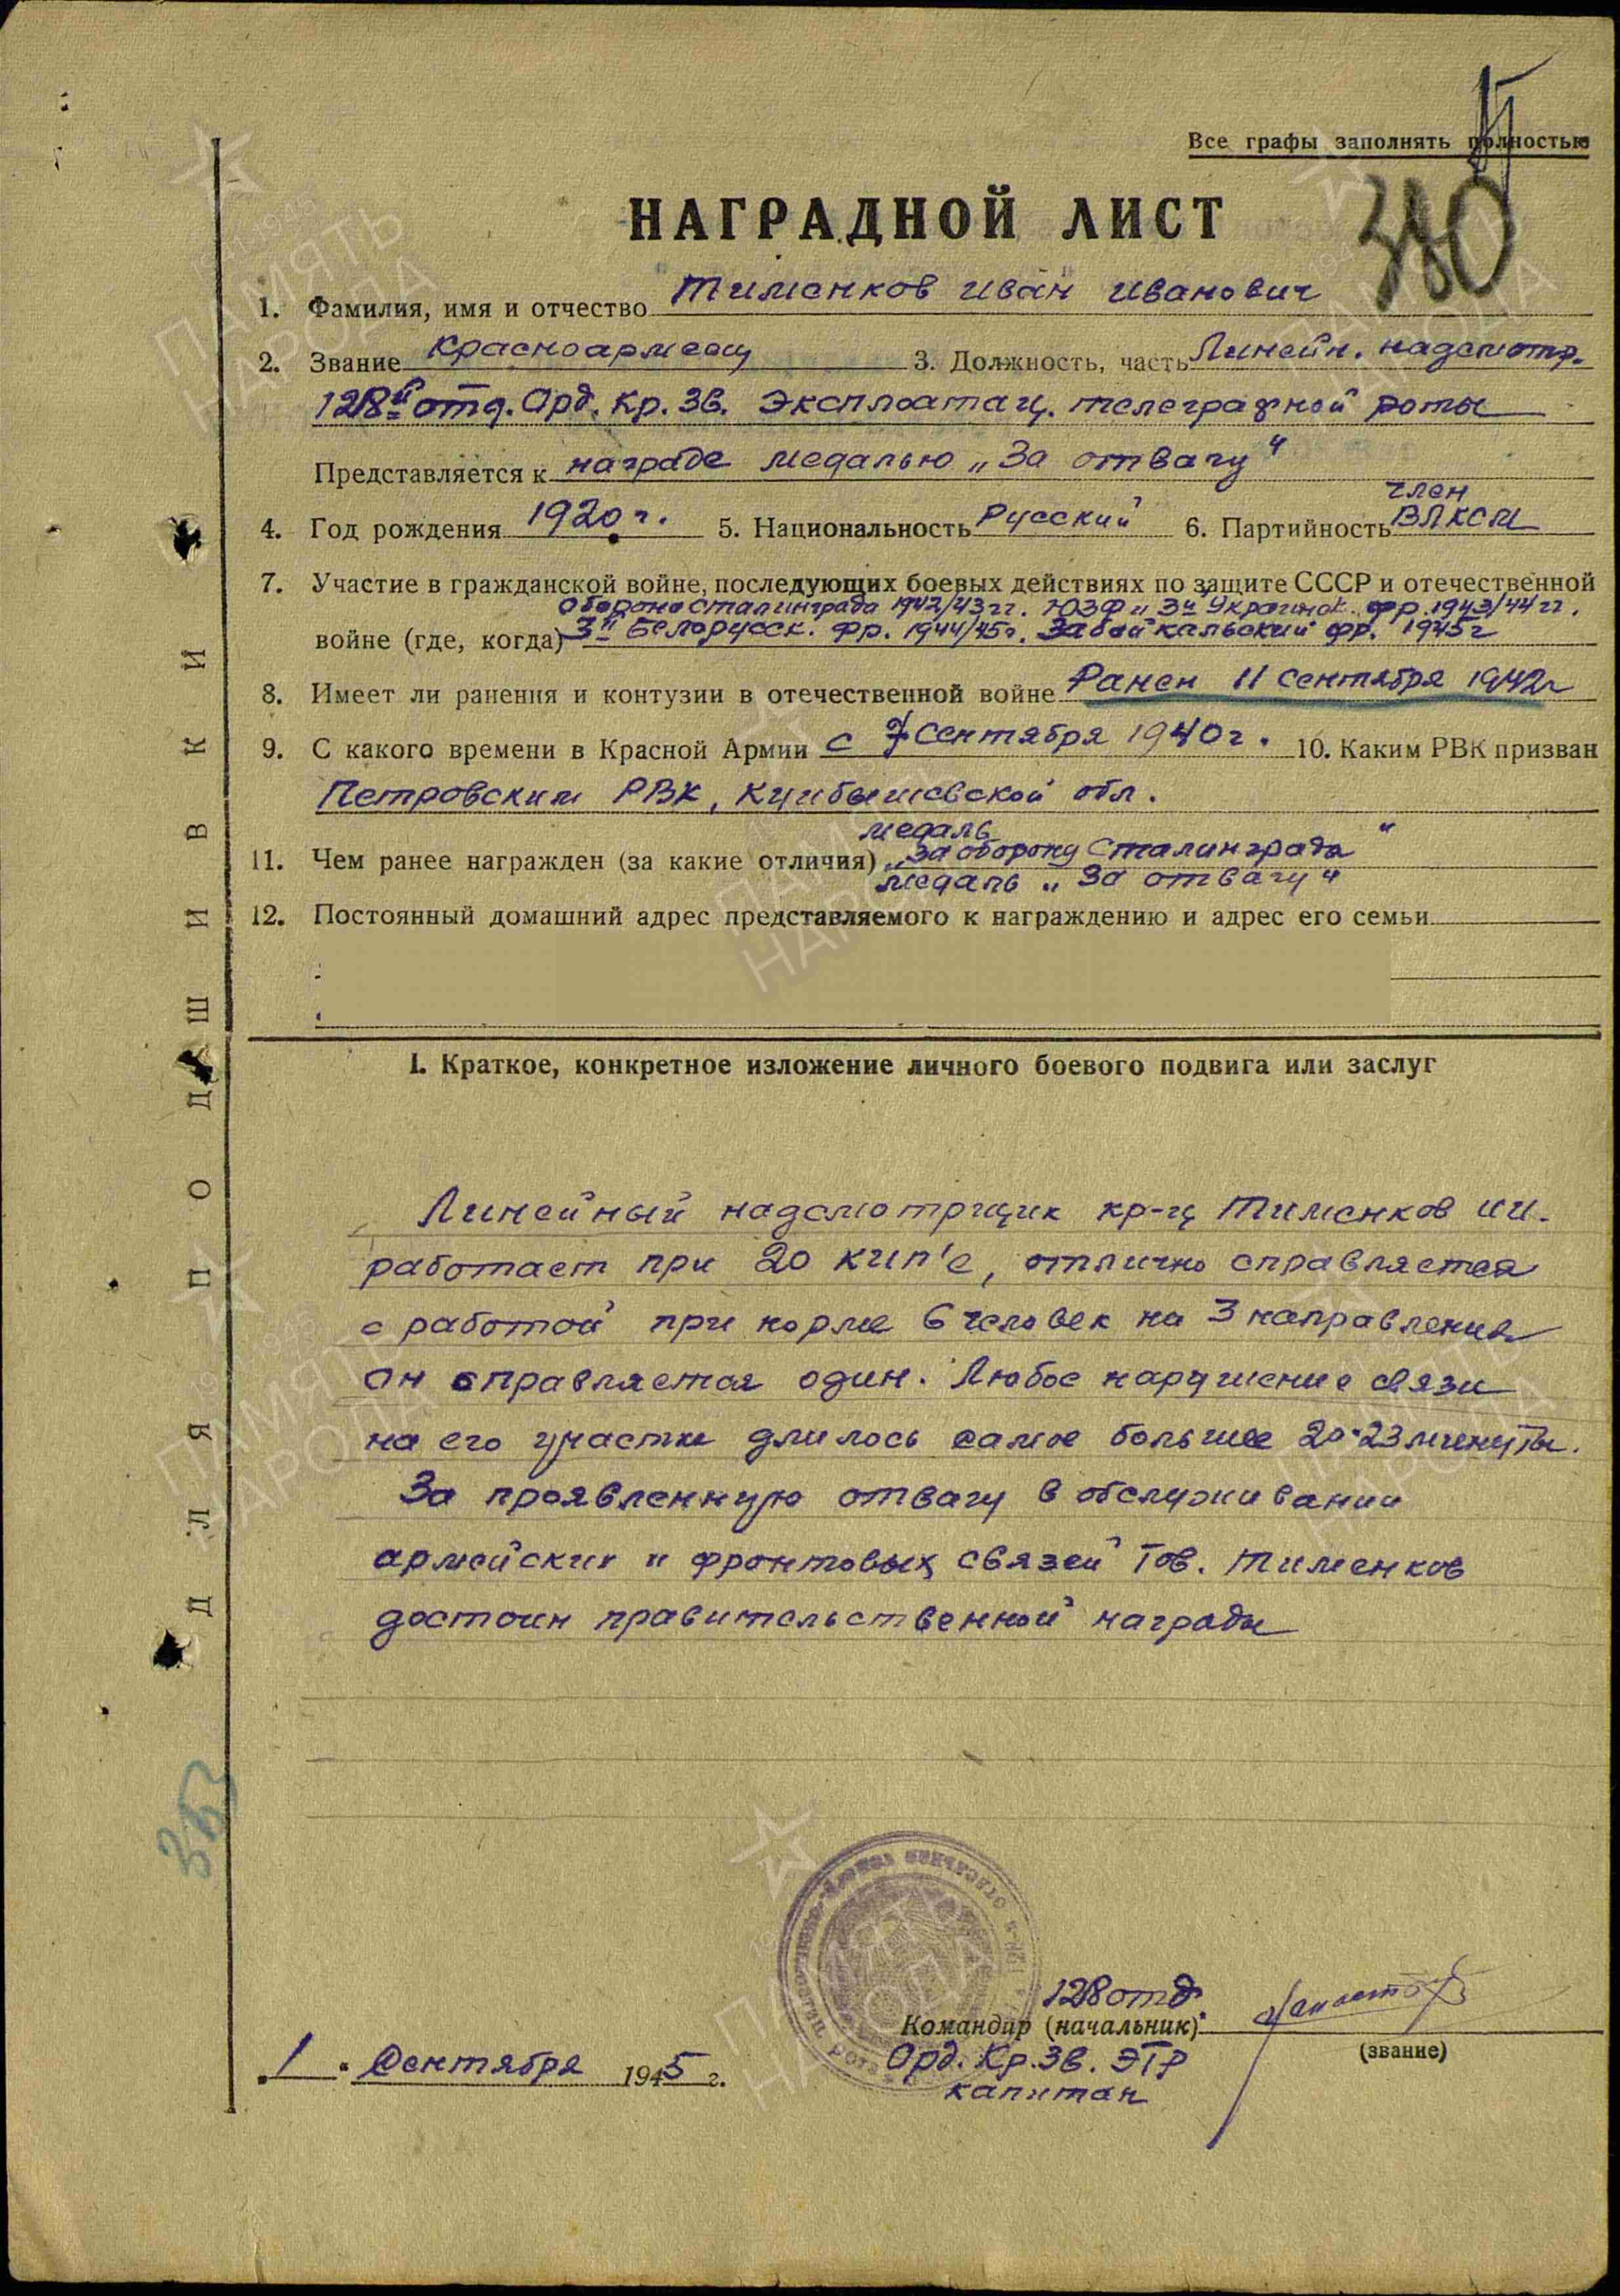 Все графы заполнять полностью
НАГРАДНОЙ ЛИСТ
380
1. Фамилия, имя и отчество Тименков Иван Иванович
2. Звание Красноармеец 3. Должность, часть Линейн. надсмотр.
128й отд. Орд. Кр. Зв. Эксплоатац. телеграфной роты
Представляется к награде медалью „За отвагу“
член
4. Год рождения 1920 г. 5. Национальность Русский 6. Партийность ВЛКСМ
7. Участие в гражданской войне, последующих боевых действиях по защите СССР и отечественной
оборона Сталинграда 1942/43 гг. ЮЗФ и 3й Украинск. фр. 1943/44 гг.
войне (где, когда) 3й Белорусск. фр. 1944/45г. Забайкальский фр. 1945г
8. Имеет ли ранения и контузии в отечественной войне Ранен 11 сентября 1942г
9. С какого времени в Красной Армии с 7 сентября 1940 г. 10. Каким РВК призван
Петровским РВК, Куйбышевской обл.
медаль
11. Чем ранее награжден (за какие отличия) „За оборону Сталинграда“
медаль „За отвагу“
12. Постоянный домашний адрес представляемого к награждению и адрес его семьи
I. Краткое, конкретное изложение личного боевого подвига или заслуг
Линейный надсмотрщик кр-ц Тименков И.И.
работает при 20 кип'е, отлично справляется
с работой при норме 6 человек на 3 направления
он справляется один. Любое нарушение связи
на его участке длилось самое большее 20-23 минуты.
За проявленную отвагу в обслуживании
армейских и фронтовых связей тов. Тименков
достоин правительственной награды
ДЛЯ ПОДШИВКИ
128 отд.
Командир (начальник)
(звание)
Орд. Кр. Зв. ЭТР
капитан
1 сентября 1945 г.
ПАМЯТЬ
НАРОДА